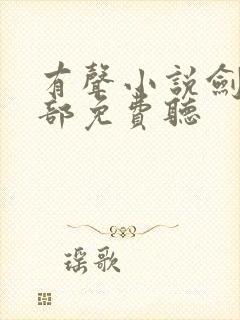 有聲小說劍
部免費聽
瑶歌